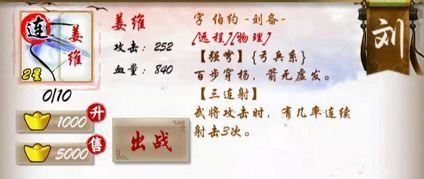 连
姜维
2星
0/10
1000 升
5000 售
姜维
攻击：252
血量：840
出战
字 伯约 -刘备-
[远程][物理]
【强弩】{弓兵系}
百步穿扬，箭无虚发。
【三连射】
武将攻击时，有几率连续
射击3次。
刘